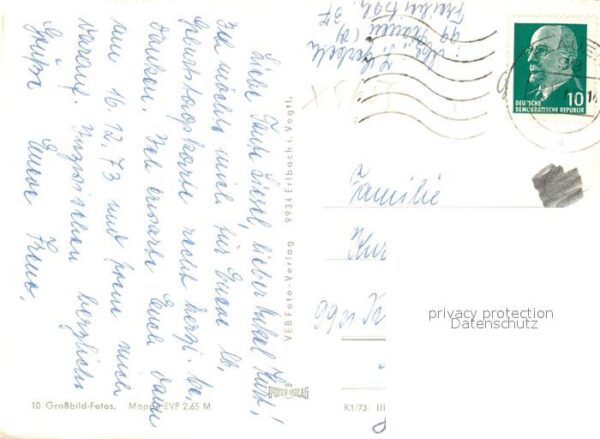 Liebe Tante Liesel, lieber Onkel Kurt!
Ich möchte mich für Eure lb.
Geburtstagskarte recht herzl. be-
danken. Ich erwarte Euch dann
am 16.12.73 und freue mich
darauf. Inzwischen herzliche
Grüße Eurer
VEB Foto-Verlag 9934 Erlbach i. Vogtl.
10 Großbild-Fotos. Mappe EVP 2.65 M
K1/73 III
DEUTSCHE
DEMOKRATISCHE REPUBLIK
10
Familie
Kur
privacy protection
Datenschutz